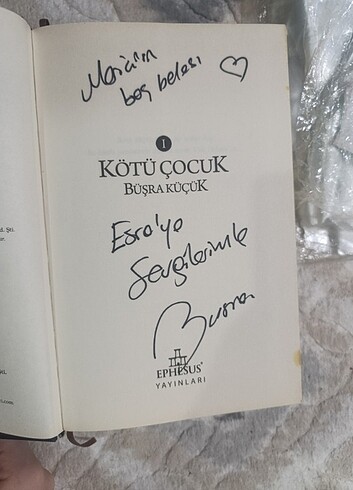 baş belası
I
KÖTÜ ÇOCUK
BÜŞRA KÜÇÜK
Esra'ya
Sevgilerimle
Büşra
EPHESUS
YAYINLARI
d. Şti.